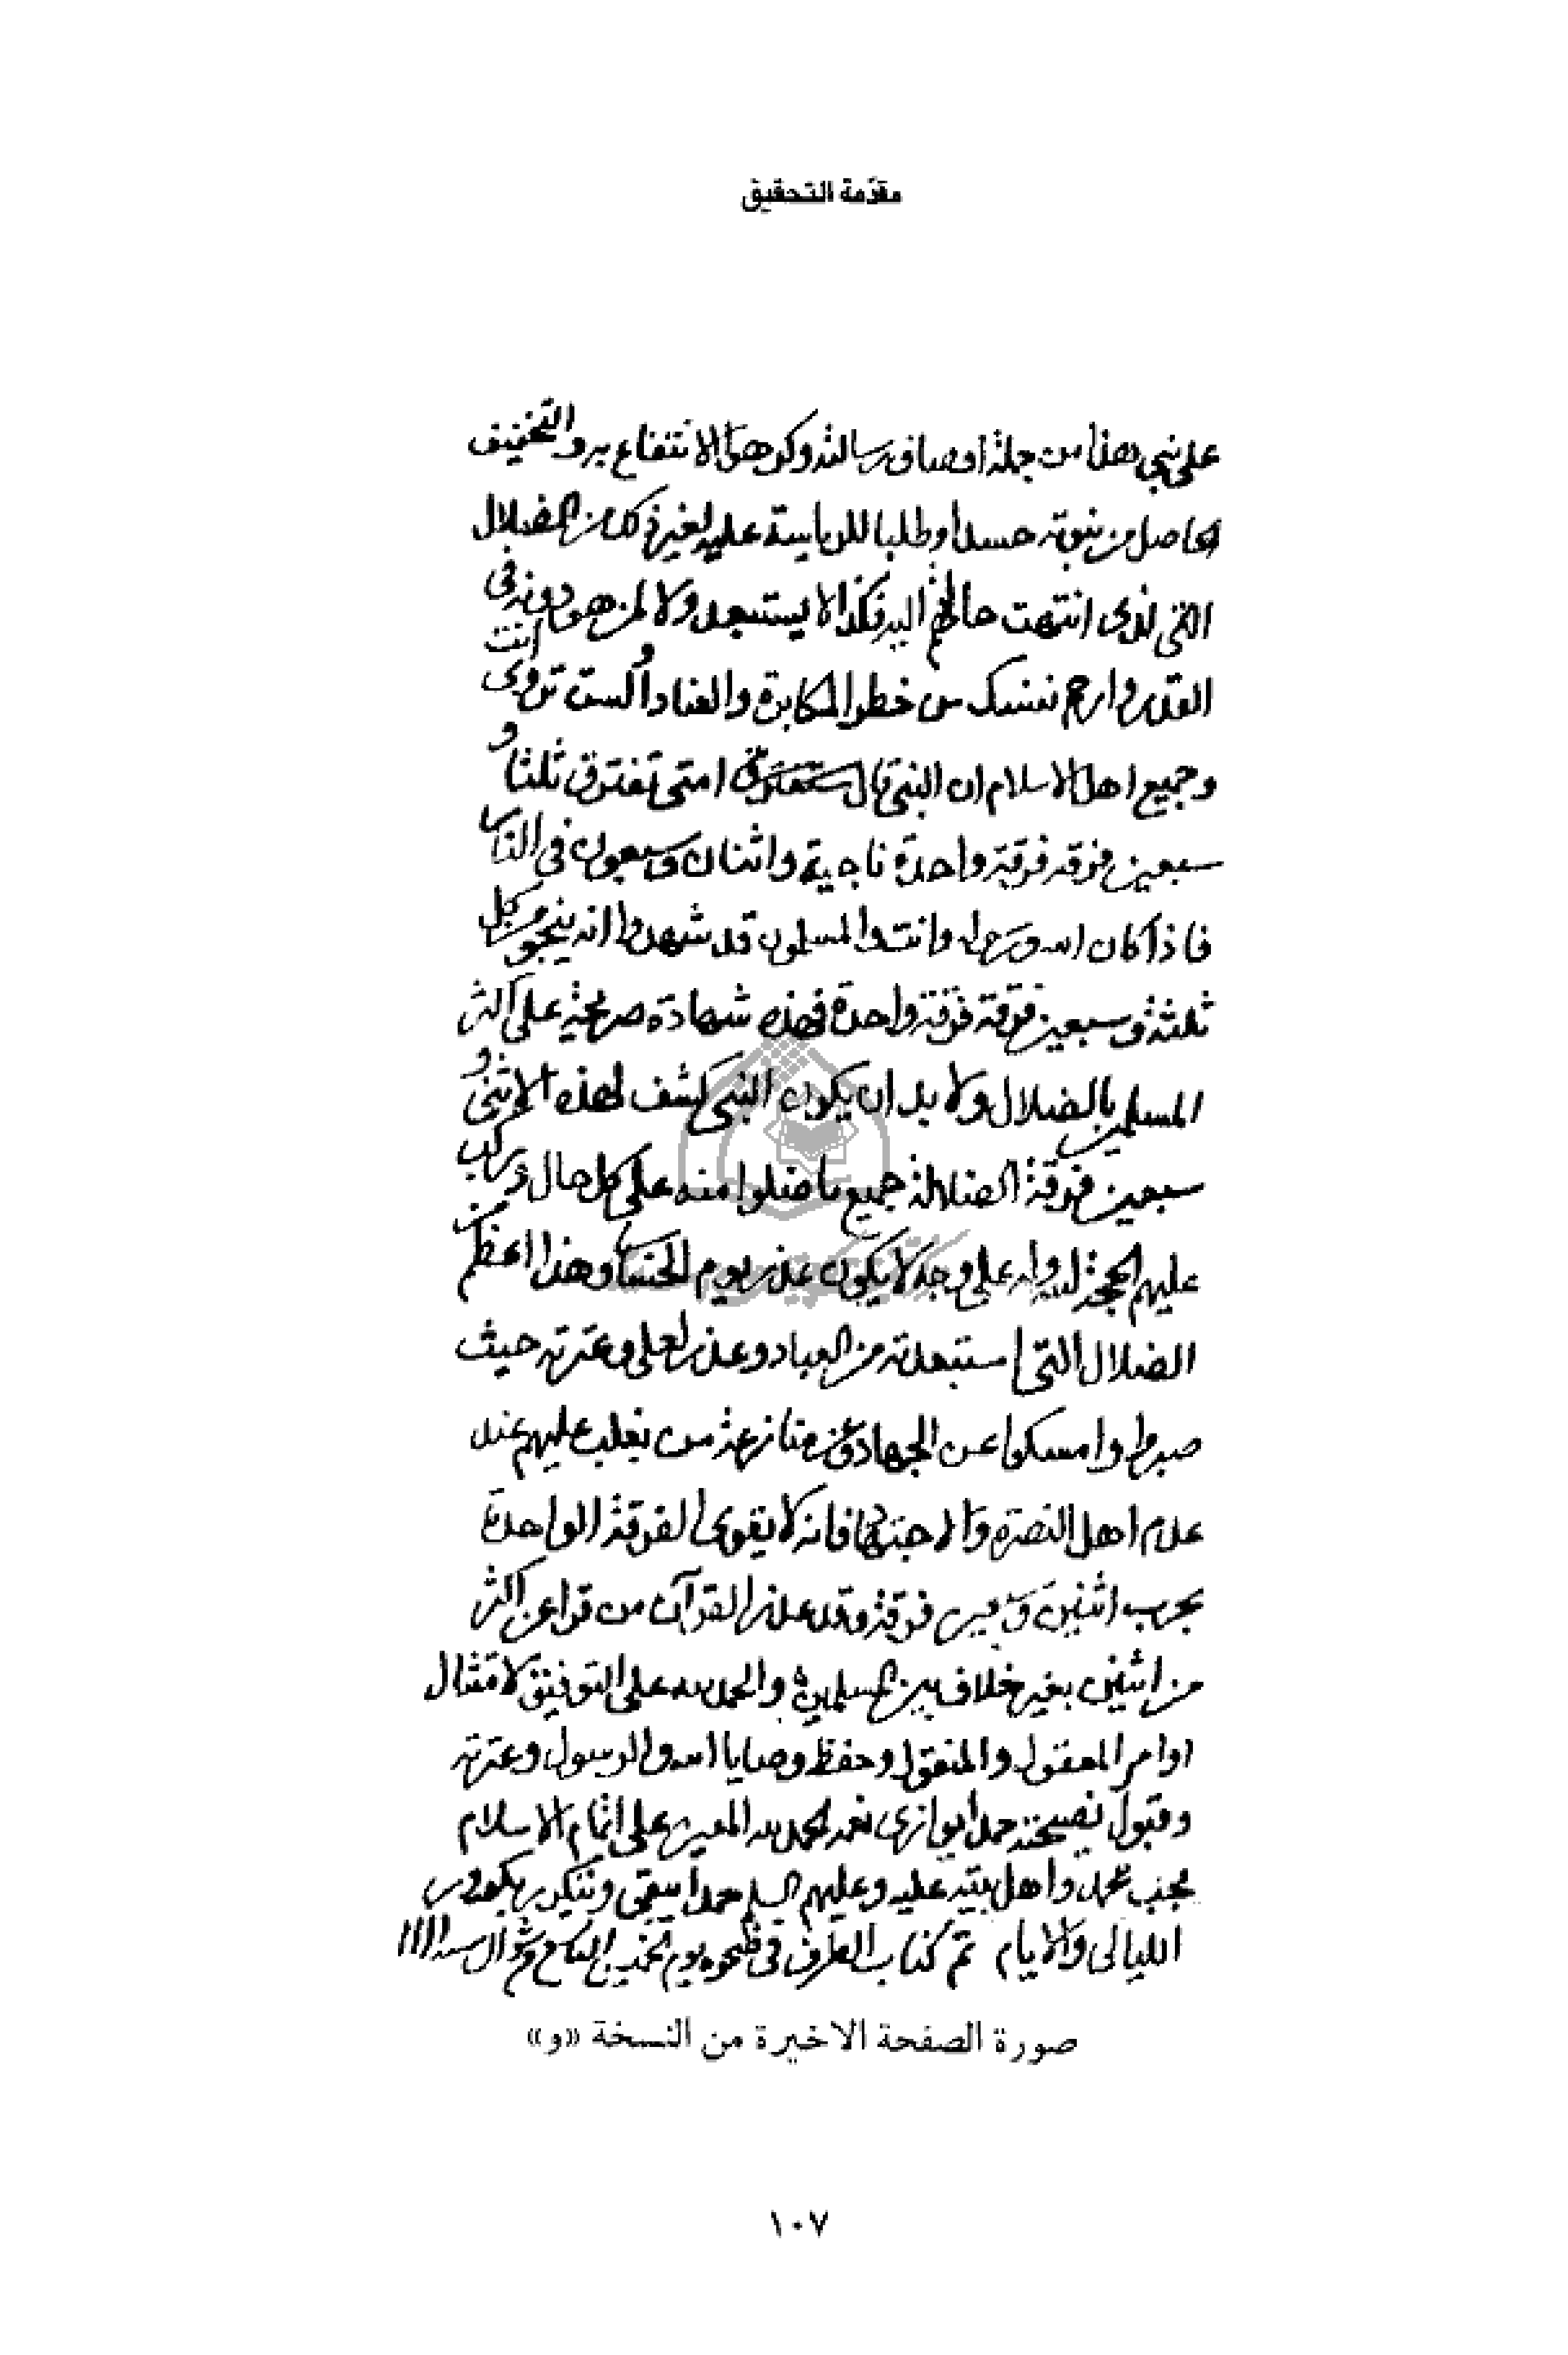 مقدّمة التحقيق
على نبي هذا من جملة اوصاف رسالته وكرهوا الانتفاع به والتخفيف
الحاصل من نبوته حسدا وطلبا للرياسة عليه لغيره كل من الضلال
الذى انتهت حالهم اليه فكذا لا يستبعد ولا لمن هو دونه فى
القدر وارحم نفسك من خطر المكابرة والعناد الست تروى انت
وجميع اهل الاسلام ان النبى قال امتى تفترق ثلثا و
سبعين فرقه فرقة واحدة ناجية واثنان وسبعون فى النار
فاذا كان الله ورسوله وانت والمسلمون قد شهدوا انه ينجو من كل
ثلثة وسبعين فرقة فرقة واحدة فهذه شهادة صريحة على اكثر
المسلمين بالضلال ولا بد ان يكون النبى كشف لهذه الاثنى و
سبعين فرقة الضالة جميع ما ضلوا منه على كل حال وركب
عليهم الحجة لله وله على وجه لا يكون عذر يوم الحساب وهذا اعظم من
الضلال التى استبعدته من العباد وعذر لعلى وعترته حيث
صبروا وامسكوا عن الجهاد وعن منازعة من تغلب عليهم عند
عدم اهل النصرة والاجتهاد فانه لا يقوى الفرقة الواحدة
بحرب اثنين وسبعين فرقة وقد عذر القرآن من فر اعن اكثر
من اثنين بغير خلاف بين المسلمين والحمد لله على التوفيق لامتثال
اوامر المعقول والمنقول وحفظ وصايا الله والرسول وعترته
وقبول نصيحته حمدا يوازى نعمه الحمد لله المعين على اتمام الاسلام
بحب محمد واهل بيته عليه وعليهم السلم حمدا يبقى ويتكرر بكرور
الليالى والايام تم كتاب الطرف فى يوم شوال سنه ١١١١
صورة الصفحة الاخيرة من النسخة «و»
١٠٧